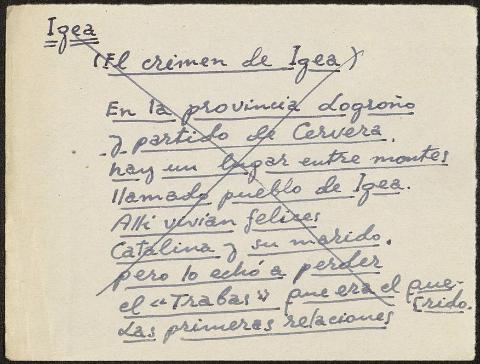 Igea
(El crimen de Igea)
En la provincia Logroño
y partido de Cervera,
hay un lugar entre montes
llamado pueblo de Igea.
Allí vivían felices
Catalina y su marido,
pero lo echó a perder
el "Trabas" que era el que-
rido.
Las primeras relaciones